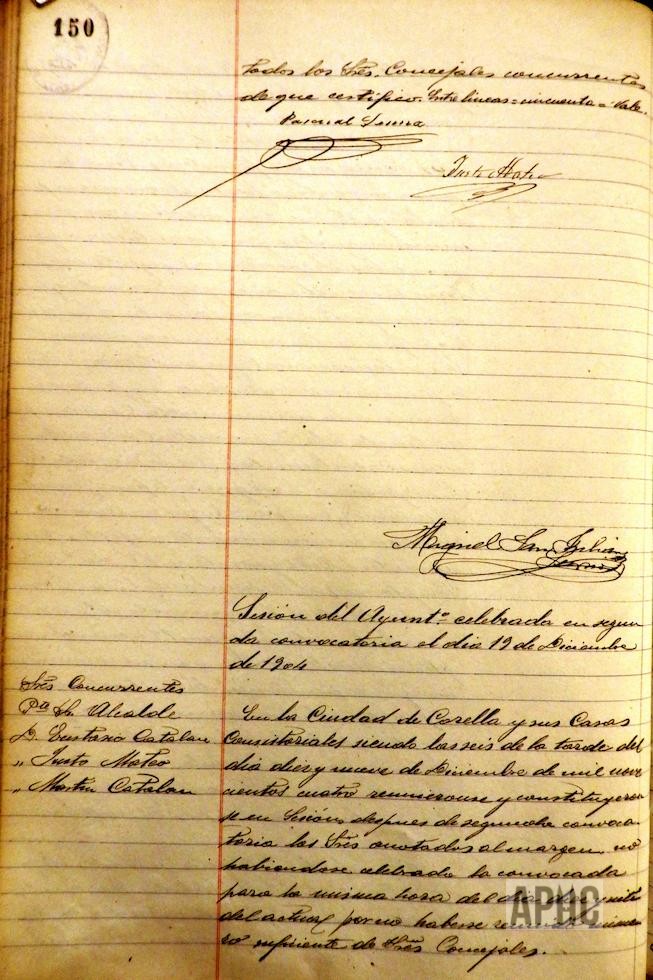 150
todos los Sres. Concejales concurrentes
de que certifico. Entre lineas = cincuenta = Vale.
Pascual
Justo Mateo
Miguel San Julian
Sesión del Ayunt.º celebrada en segun
da convocatoria el dia 19 de Diciembre
de 1904
Sres Concurrentes
Pte Sr. Alcalde
D. Eustasio Catalan
" Justo Mateo
" Martin Catalan
En la Ciudad de Corella y sus Casas
Consistoriales siendo las seis de la tarde del
dia diez y nueve de Diciembre de mil nove
cientos cuatro reunieronse y constituyeron
se en Sesión, despues de segunda convoca
toria los Sres anotados al margen, no
habiendose celebrado la convocada
para la misma hora del dia diez y siete
del actual por no haberse reunido núme
ro suficiente de Sres Concejales.
APMC